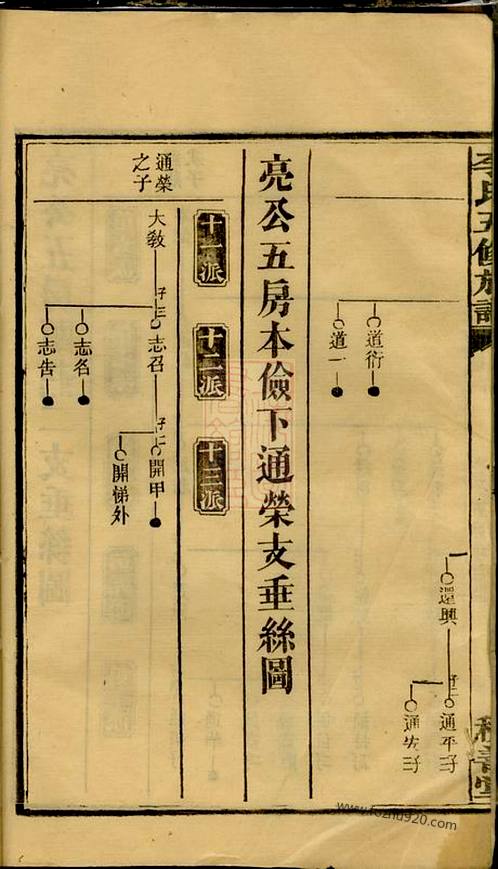 李氏五修族譜
還興
子二
通平
子
通先
子三
道衍
道一
亮公五房本儉下通榮支垂絲圖
十一派
十二派
十三派
通榮之子
大教
子三
志召
志名
志告
子二
開甲
開悌外
www.fozhu920.com